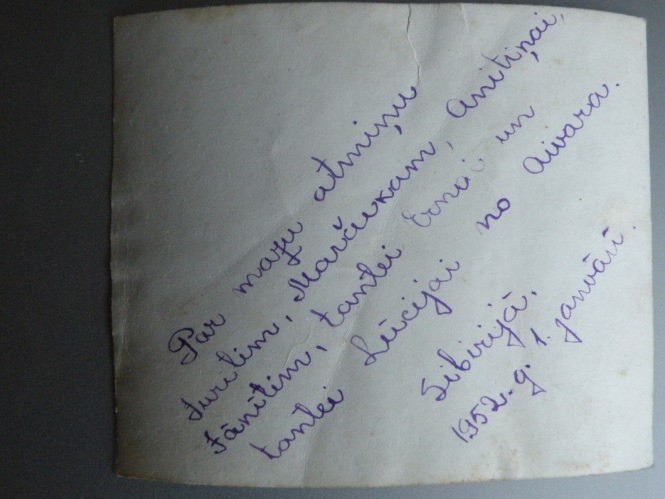 Par mazu atmiņu
Jurītim, Maručukam, Anitiņai,
Jānītim, tantei Ernai un
tantei Lūcijai no Aivara.
Sibirijā,
1952. g. 1. janvārī.